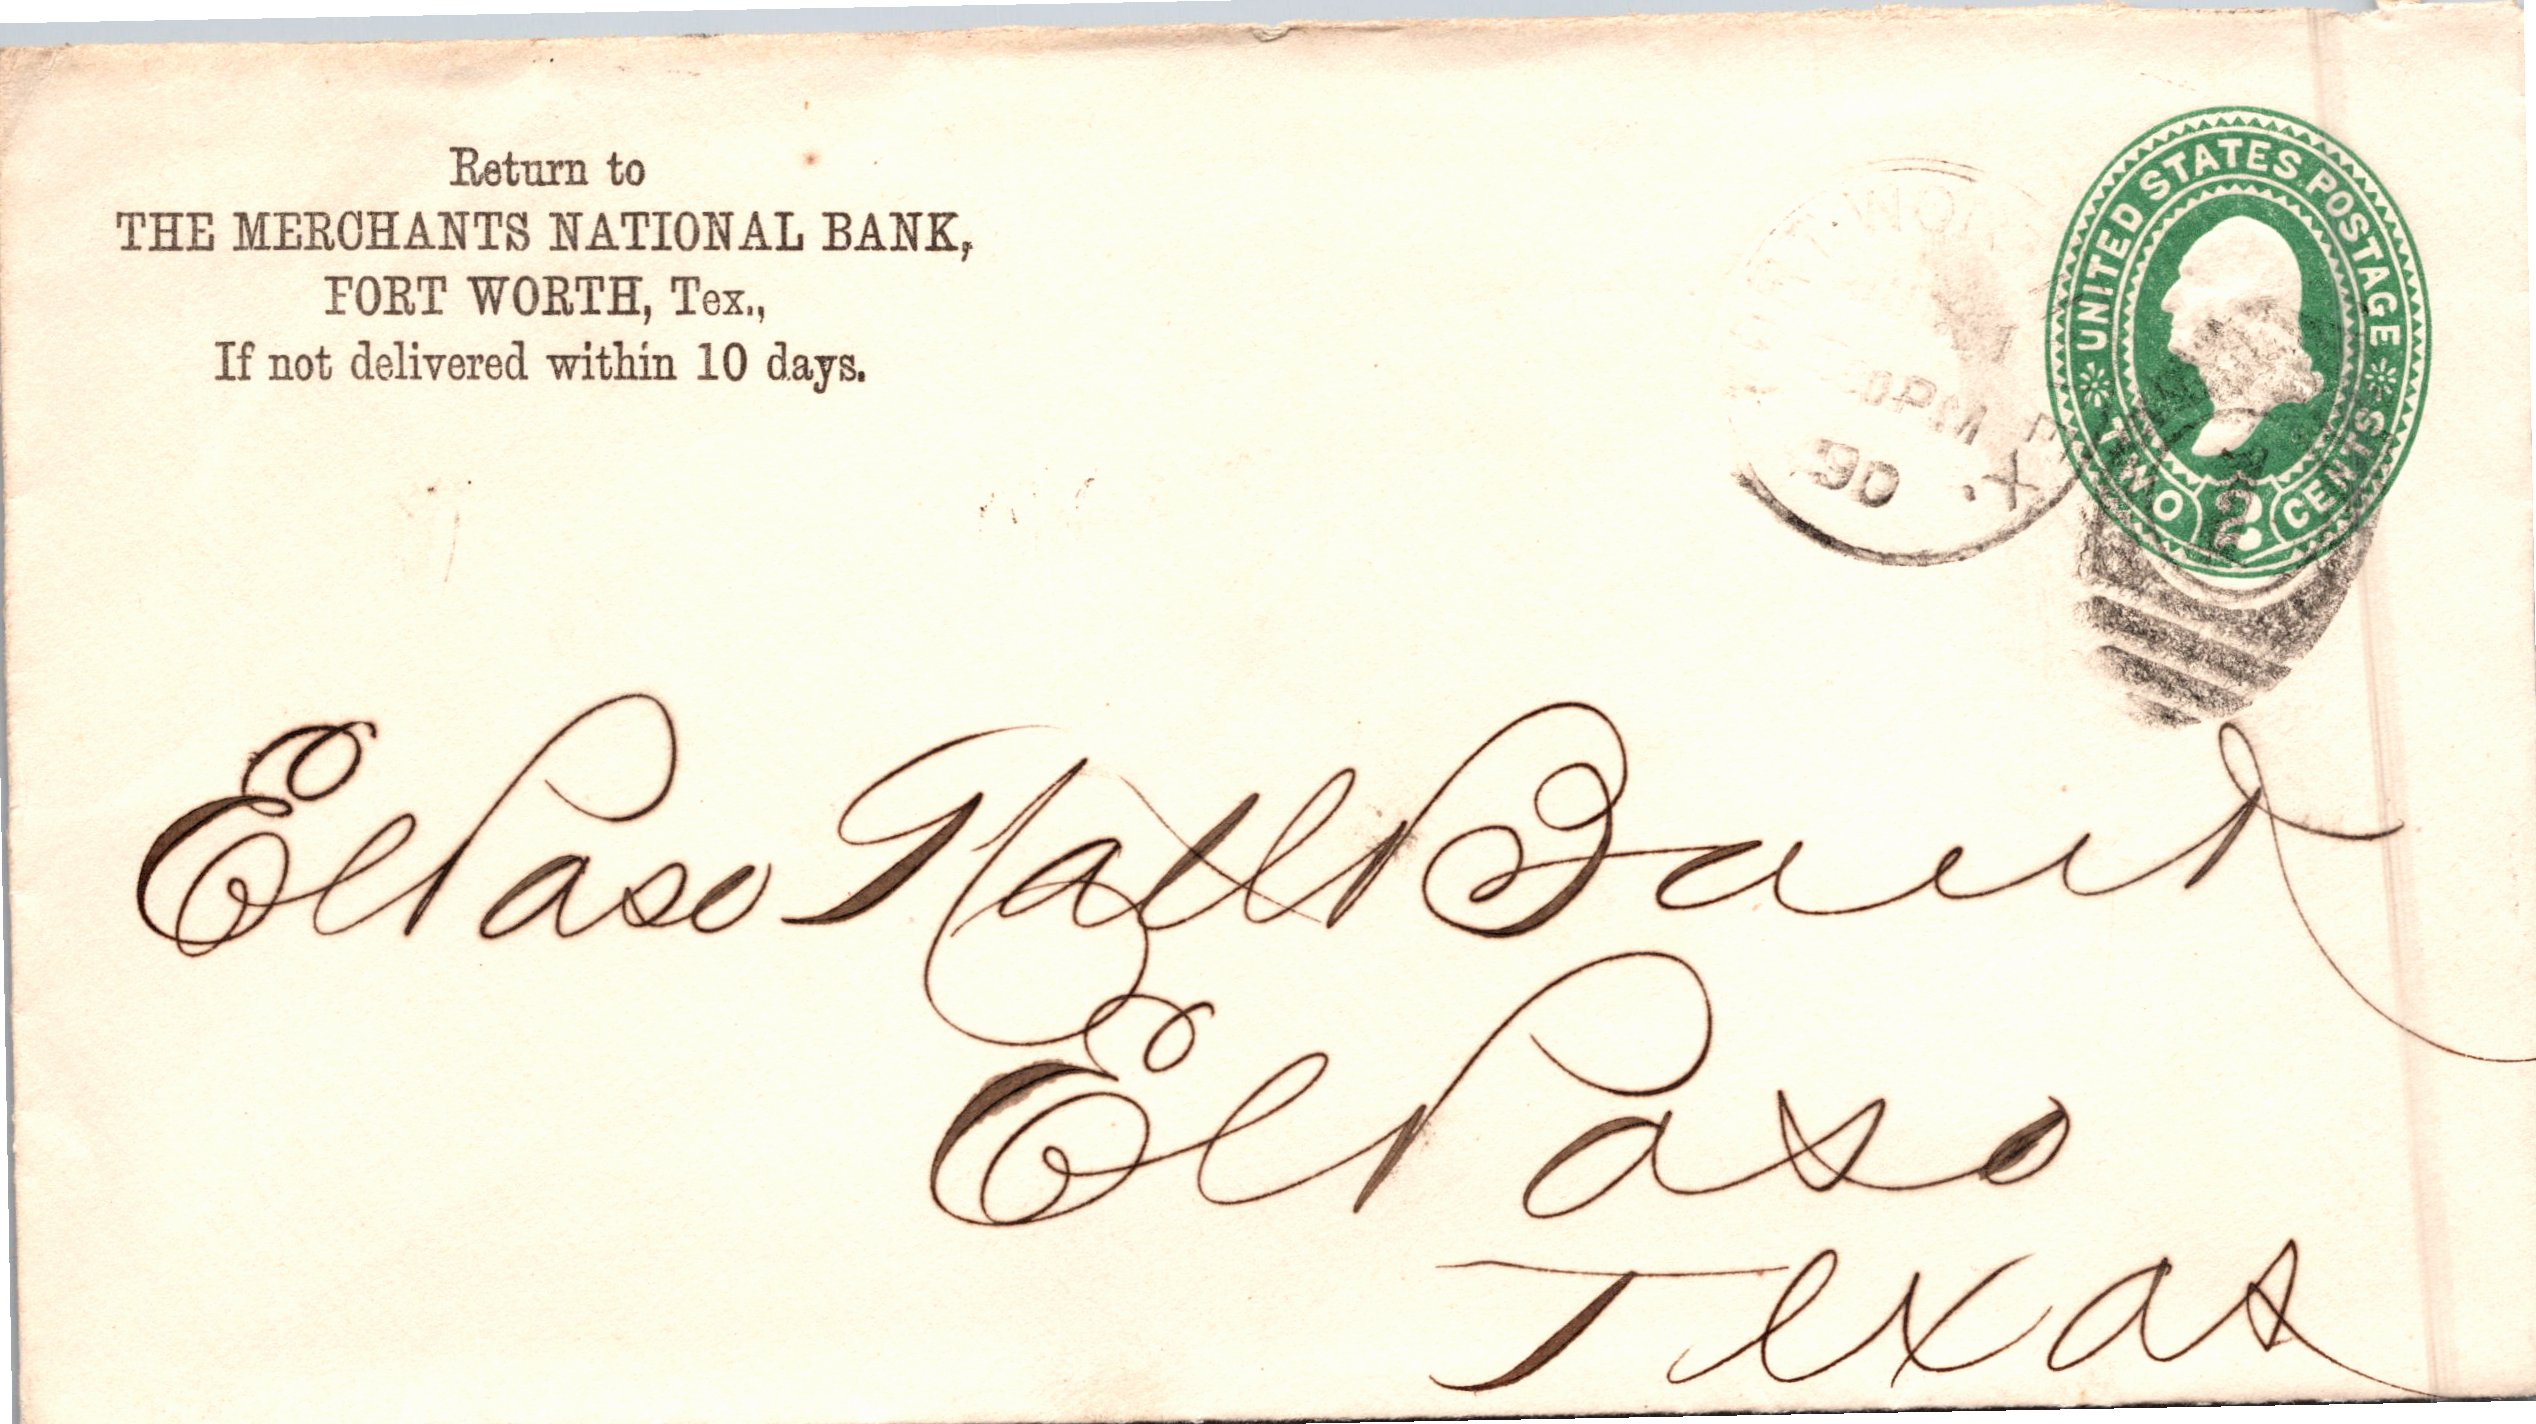 Return to
THE MERCHANTS NATIONAL BANK,
FORT WORTH, Tex.,
If not delivered within 10 days.
UNITED STATES POSTAGE
TWO CENTS
2
90
El Paso Natl Bank
El Paso
Texas